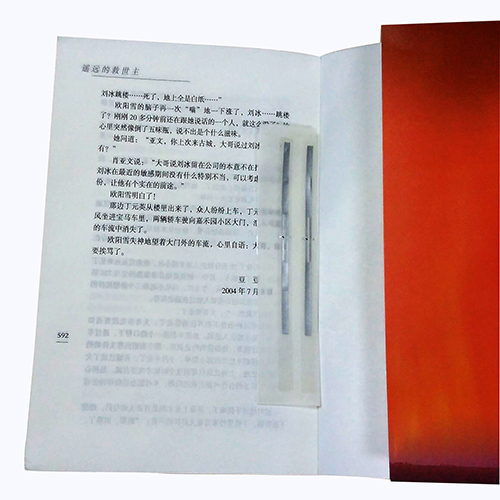 遥远的救世主
刘冰跳楼……死了，地上全是白纸……”
欧阳雪的脑子再一次“嗡”地一下涨了，刘冰……跳楼
了？刚刚20多分钟前还在跟她说话的一个人，就这么
心里突然像倒了五味瓶，说不出是个什么滋味。
她问道：“亚文，你上次来古城，大哥说过刘冰
有？”
肖亚文说：“大哥说刘冰留在公司的本意不在
刘冰在最近的敏感期间没有什么特别不当，可以考虑
份，让他有个实在的前途。”
欧阳雪明白了！
那边丁元英从楼里出来了，众人纷纷上车，丁元
风坐进宝马车里，两辆轿车驶向嘉禾园小区大门，
的车流中消失了。
欧阳雪失神地望着大门外的车流，心里自语：大
要挨骂了。
豆
2004年7月
592